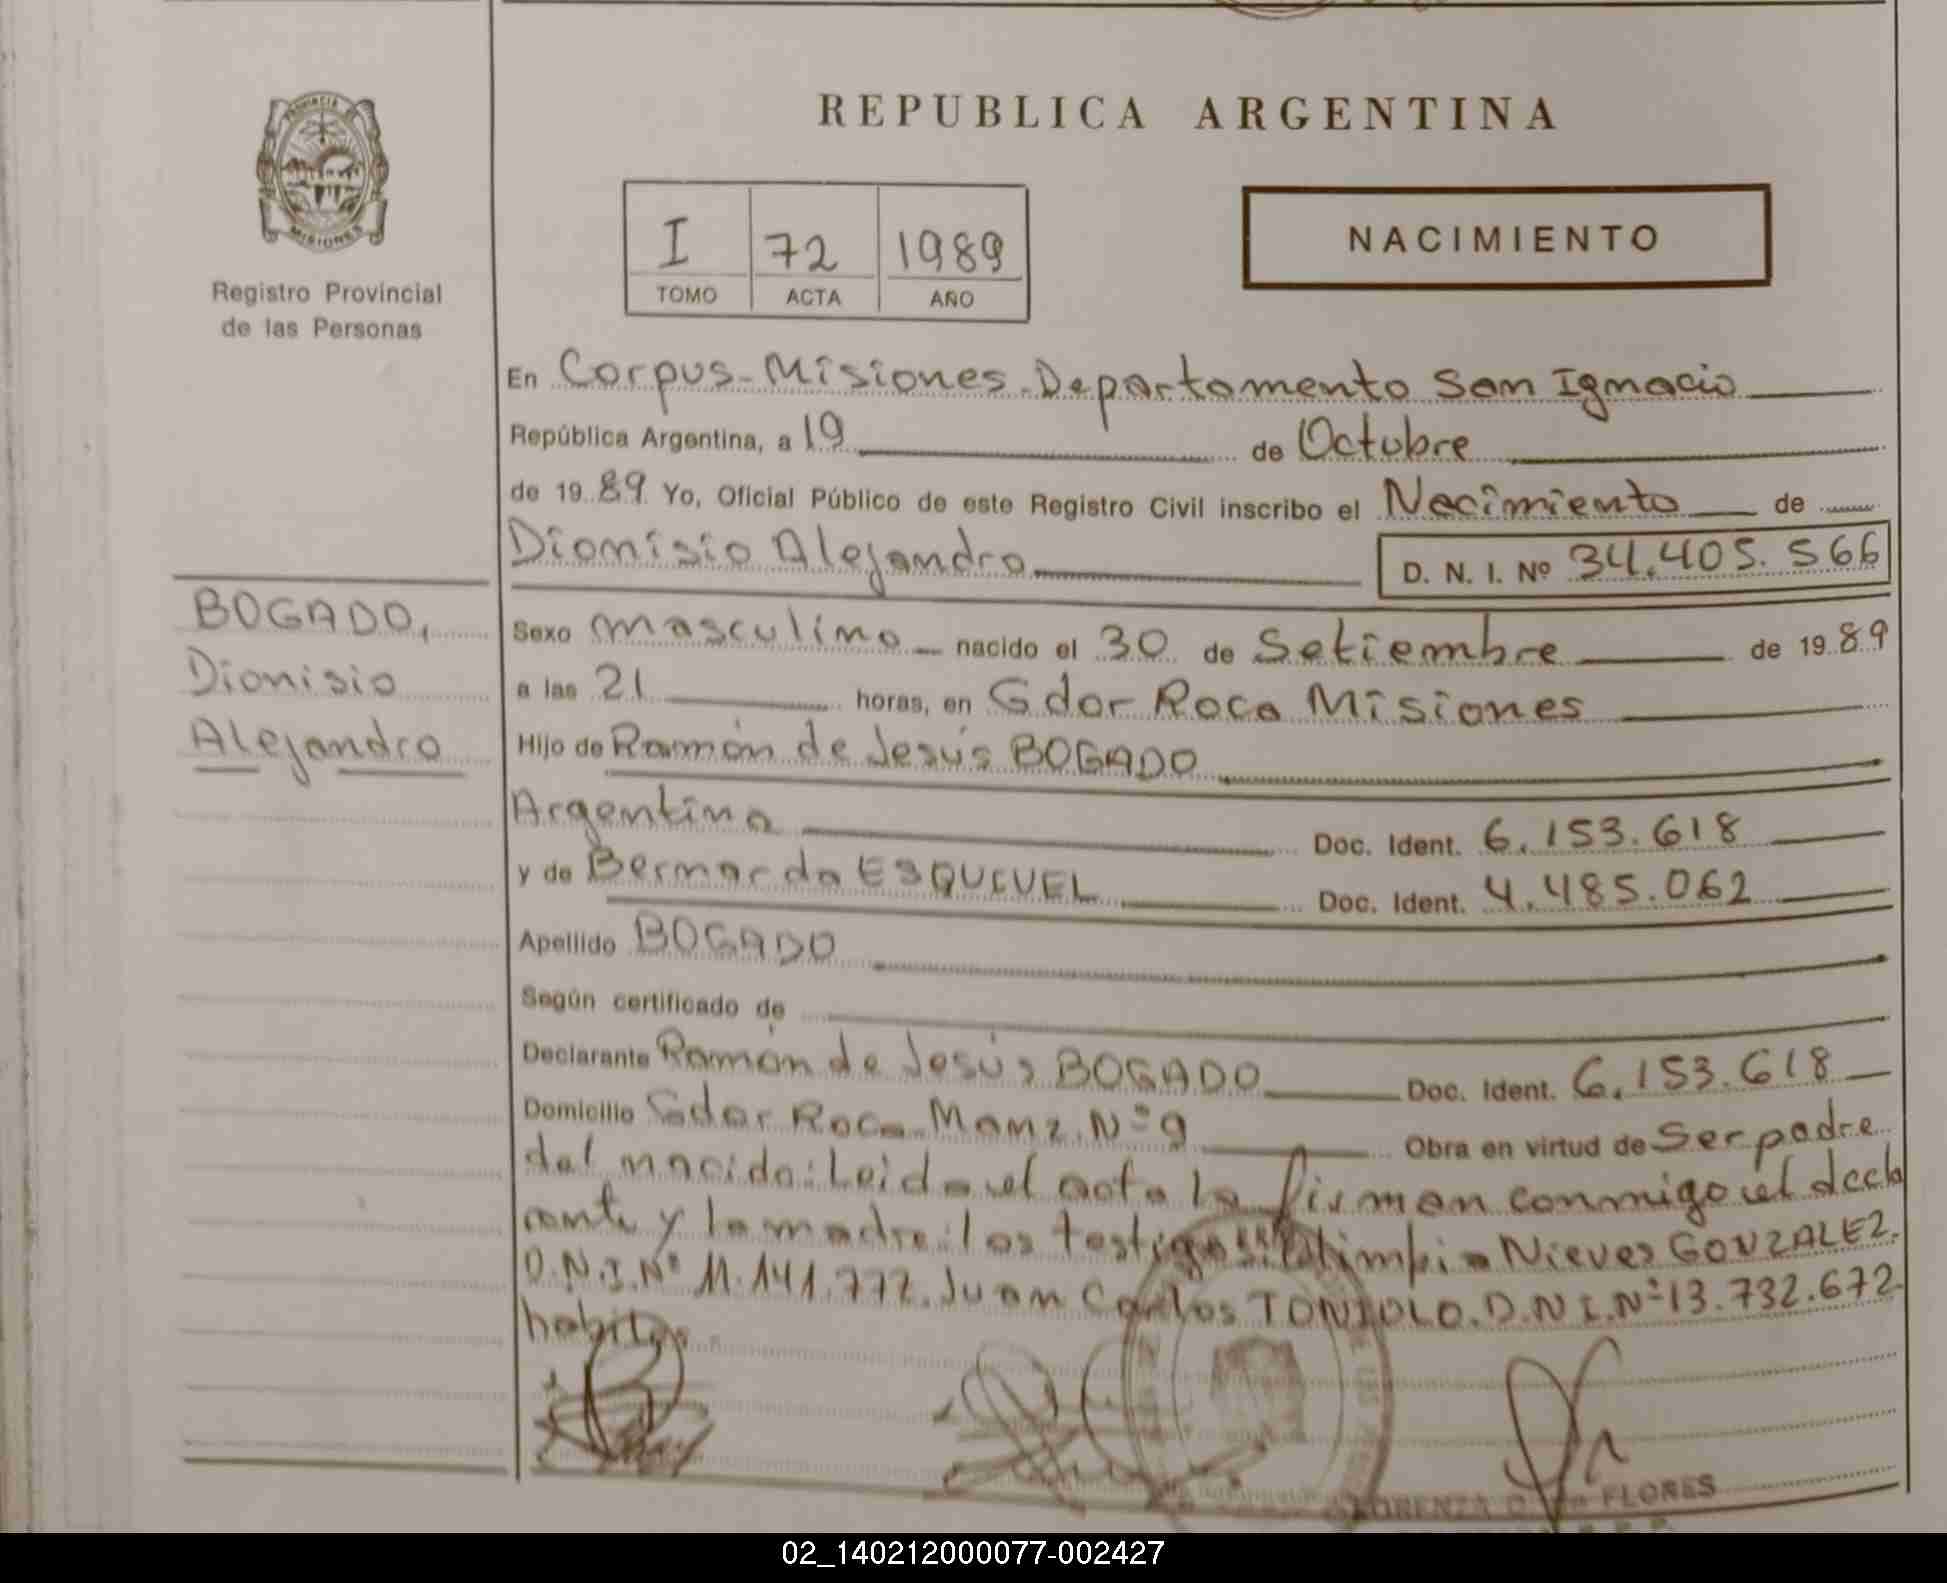 REPUBLICA ARGENTINA
PROVINCIA
MISIONES
Registro Provincial
de las Personas
I 72 1989
TOMO ACTA AÑO
NACIMIENTO
En Corpus - Misiones - Departamento San Ignacio
República Argentina, a 19 de Octubre
de 19 89 Yo, Oficial Público de este Registro Civil inscribo el Nacimiento de
Dionisio Alejandro D. N. I. Nº 34.405.566
BOGADO,
Dionisio
Alejandro
Sexo masculino nacido el 30 de Setiembre de 19 89
a las 21 horas, en Gdor Roca Misiones
Hijo de Ramón de Jesús BOGADO
Argentino Doc. Ident. 6.153.618
y de Bernarda ESQUIVEL Doc. Ident. 4.485.062
Apellido BOGADO
Según certificado de
Declarante Ramón de Jesús BOGADO Doc. Ident. 6.153.618
Domicilio Gdor Roca Manz. Nº 9 Obra en virtud de Ser padre
del nacido: Leida el acta la firman conmigo el decla
rante y la madre: los testigos: Nieves GONZALEZ.
D.N.I.Nº 11.141.772. Juan Carlos TONIOLO. D.N.I.Nº 13.732.672
habiles
LORENZA FLORES
02_140212000077-002427